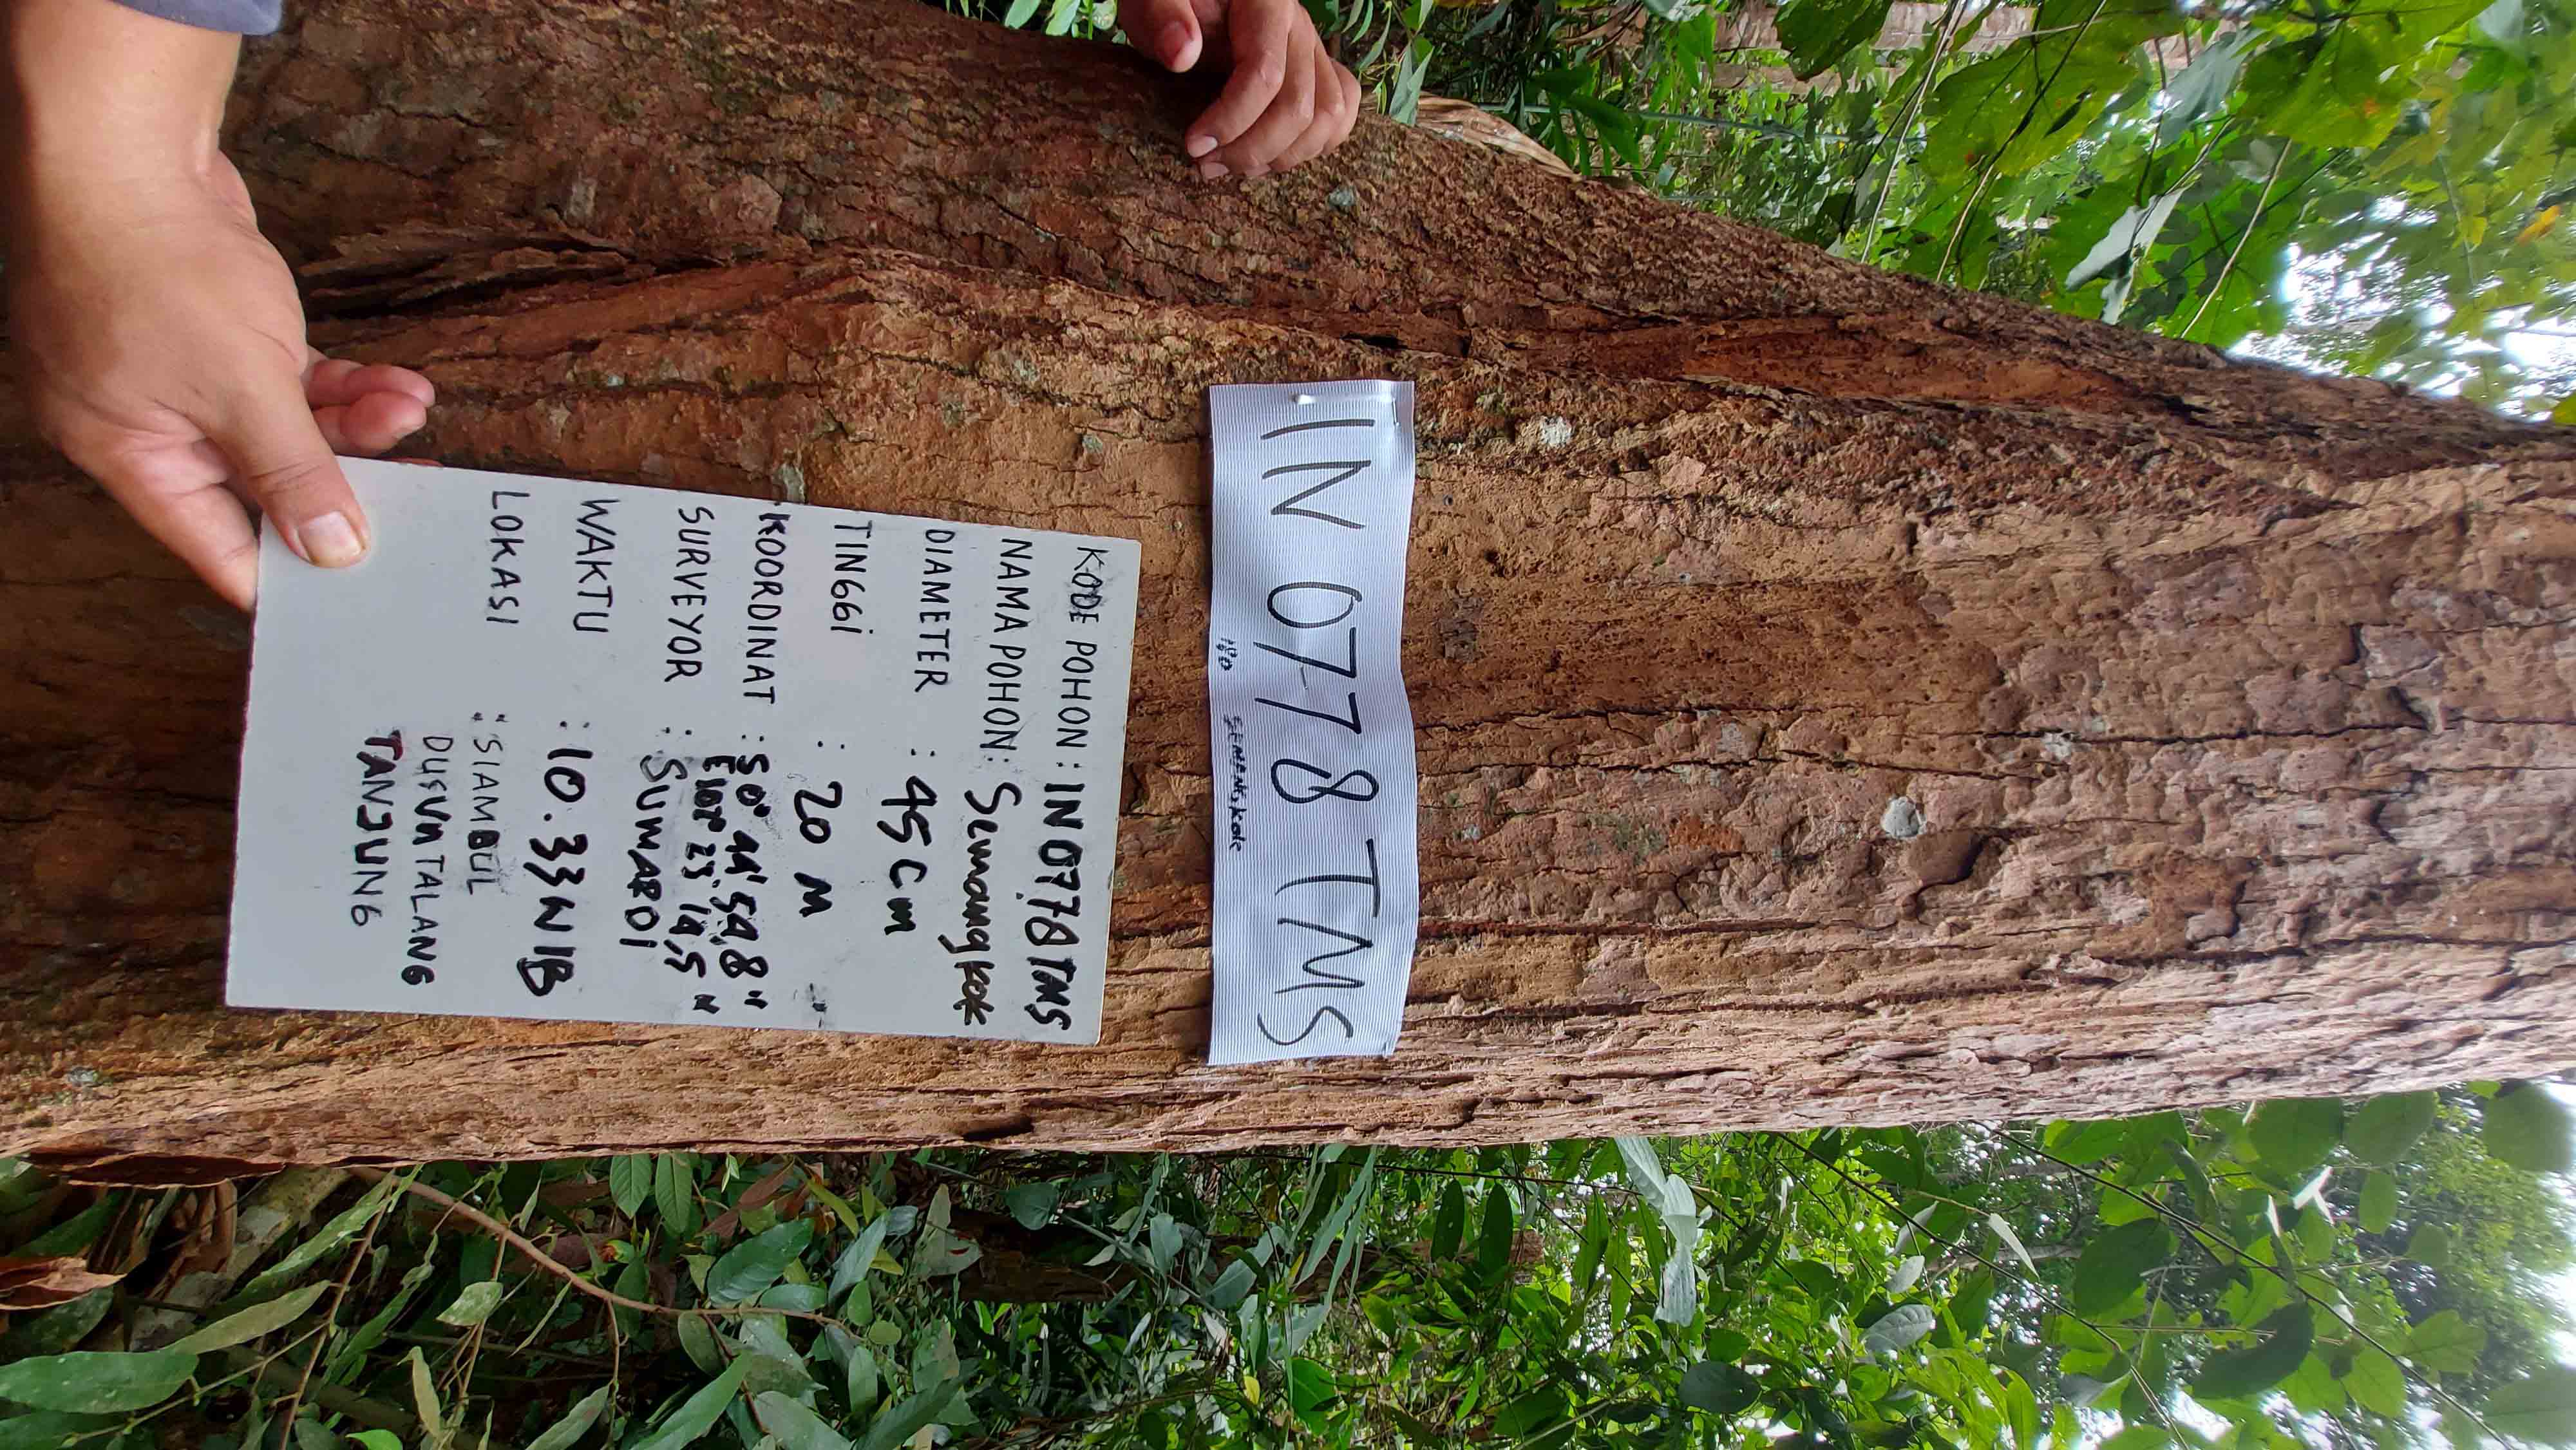 IN 0778 TMS
180 SEMANGKOK
KODE POHON : IN 0778 TMS
NAMA POHON : Semangkok
DIAMETER : 45 cm
TINGGI : 20 M
KOORDINAT : S 0° 44' 54,8"
E 102° 23' 14,5"
SURVEYOR : SUMARDI
WAKTU : 10.33 WIB
LOKASI : SIAMBUL
DUSUN TALANG
TANJUNG